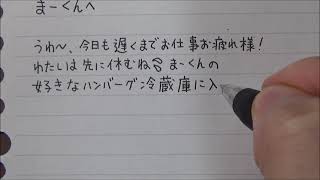 まーくんへ
うわ〜、今日も遅くまでお仕事お疲れ様!
わたしは先に休むね まーくんの
好きなハンバーグ冷蔵庫に入